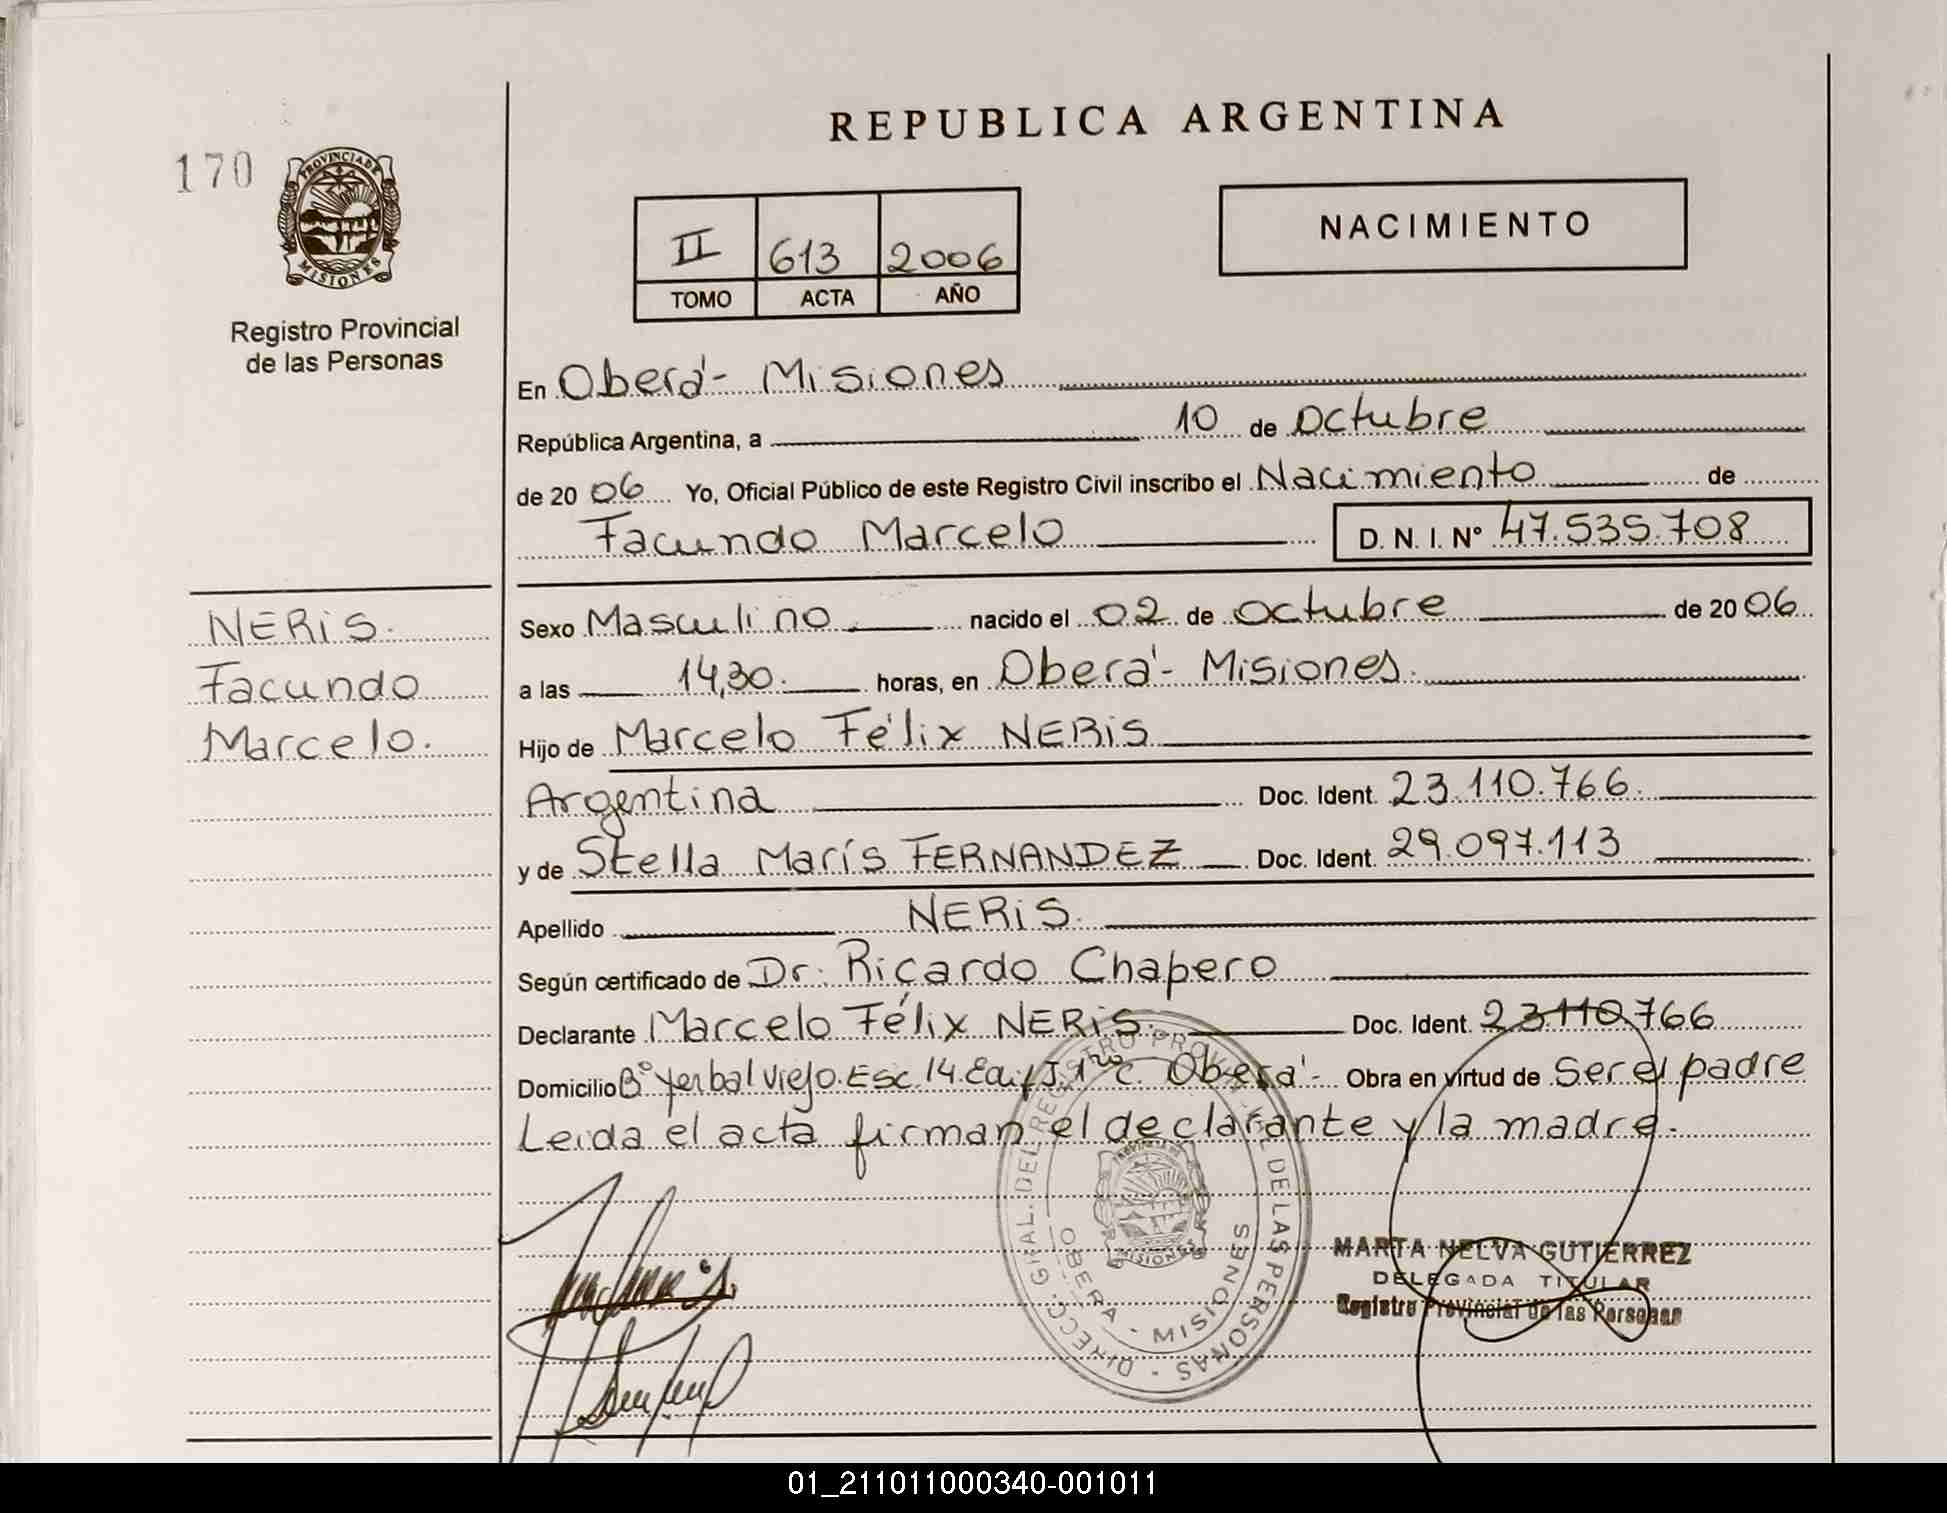 REPUBLICA ARGENTINA
170
PROVINCIA DE
MISIONES
Registro Provincial
de las Personas
II 613 2006
TOMO ACTA AÑO
NACIMIENTO
En Oberá - Misiones
República Argentina, a 10 de Octubre
de 20 06 Yo, Oficial Público de este Registro Civil inscribo el Nacimiento de
Facundo Marcelo D. N. I. Nº 47.535.708
NERIS.
Facundo
Marcelo.
Sexo Masculino nacido el 02 de Octubre de 20 06
a las 14,30. horas, en Oberá - Misiones.
Hijo de Marcelo Félix NERIS
Argentina Doc. Ident. 23.110.766.
y de Stella Marís FERNANDEZ Doc. Ident. 29.097.113
Apellido NERIS.
Según certificado de Dr. Ricardo Chapero
Declarante Marcelo Félix NERIS. Doc. Ident. 23.110.766
Domicilio Bº Yerbal Viejo. Esc. 14. Edif J. 1ro C. Oberá - Obra en virtud de Ser el padre
Leida el acta firman el declarante y la madre.
DIRECC. GRAL. DEL REGISTRO PROVINCIAL DE LAS PERSONAS
OBERA - MISIONES
MARTA NELVA GUTIERREZ
DELEGADA TITULAR
Registro Provincial de las Personas
01_211011000340-001011